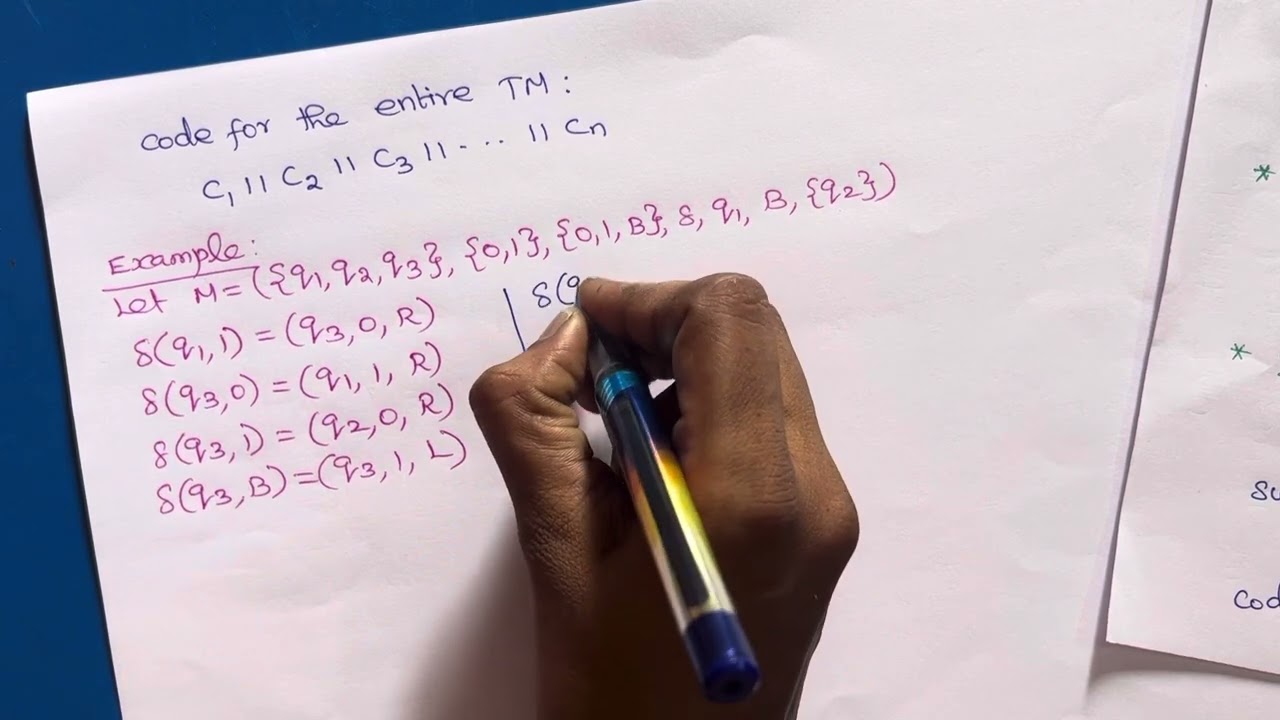 code for the entire TM:
C₁ 11 C₂ 11 C₃ 11 ... 11 Cn
Example:
Let M = ({q₁, q₂, q₃}, {0,1}, {0,1,B}, δ, q₁, B, {q₂})
δ(q₁,1) = (q₃,0,R)
δ(q₃,0) = (q₁,1,R)
δ(q₃,1) = (q₂,0,R)
δ(q₃,B) = (q₃,1,L)
δ(q
*
*